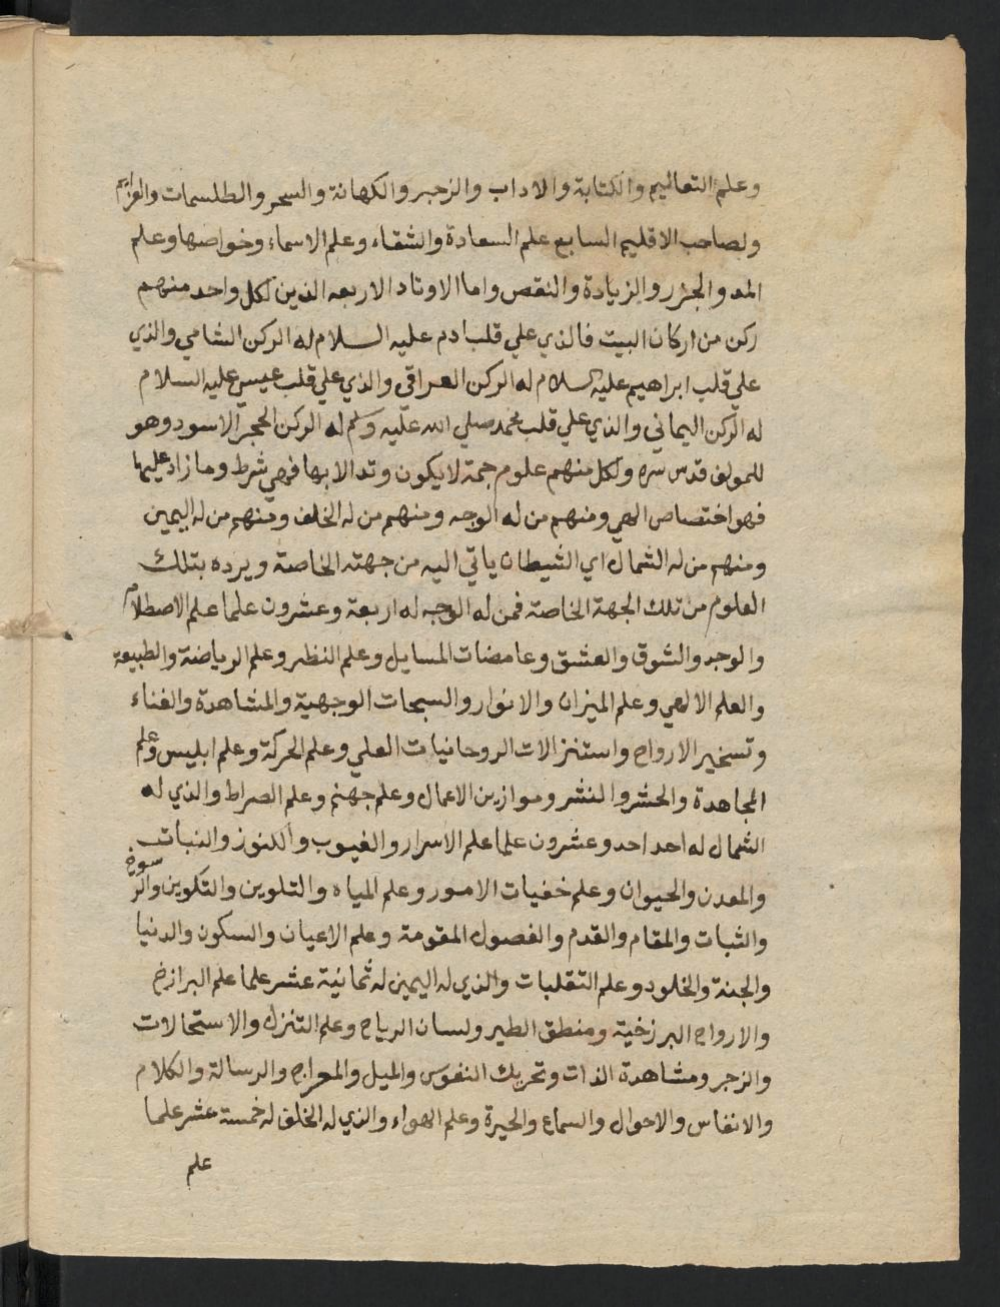 وعلم التعاليم والكتابة والاداب والزجر والكهانة والسحر والطلسمات والعزايم
ولصاحب الاقليم السابع علم السعادة والشقاء وعلم الاسماء وخواصها وعلم
المد والجزر والزيادة والنقص واما الاوتاد الاربعه الذين لكل واحد منهم
ركن من اركان البيت فالذي علي قلب ادم عليه السلام له الركن الشامي والذي
علي قلب ابراهيم عليه السلام له الركن العراقي والذي علي قلب عيسي عليه السلام
له الركن اليماني والذي علي قلب محمد صلي الله عليه وسلم له الركن الحجر الاسود وهو
للمولف قدس سره ولكل منهم علوم جمة لا يكون وتد الا بها فهي شرط وما زاد عليها
فهو اختصاص الهي ومنهم من له الوجه ومنهم من له الخلف ومنهم من له اليمين
ومنهم من له الشمال اي الشيطان ياتي اليه من جهته الخاصة ويرده بتلك
العلوم من تلك الجهة الخاصة فمن له الوجه له اربعة وعشرون علما علم الاصطلام
والوجد والشوق والعشق وغامضات المسايل وعلم النظر وعلم الرياضة والطبيعة
والعلم الالهي وعلم الميزان والانوار والسبحات الوجهية والمشاهدة والفناء
وتسخير الارواح واستنزالات الروحانيات العلي وعلم الحركة وعلم ابليس وعلم
المجاهدة والحشر والنشر وموازين الاعمال وعلم جهنم وعلم الصراط والذي له
الشمال له احد احد وعشرون علما علم الاسرار والغيوب والكنوز والنبات
والمعدن والحيوان وعلم خفيات الامور وعلم المياه والتلوين والتكوين والرسوخ
والثبات والمقام والقدم والفصول المقومة وعلم الاعيان والسكون والدنيا
والجنة والخلود وعلم التقلبات والذي له اليمين له ثمانية عشر علما علم البرازخ
والارواح البرزخية ومنطق الطير ولسان الرياح وعلم التنزل والاستحالات
والزجر ومشاهدة الذات وتحريك النفوس والميل والمعراج والرسالة والكلام
والانفاس والاحوال والسماع والحيرة وعلم الهواء والذي له الخلف له خمسة عشر علما
علم